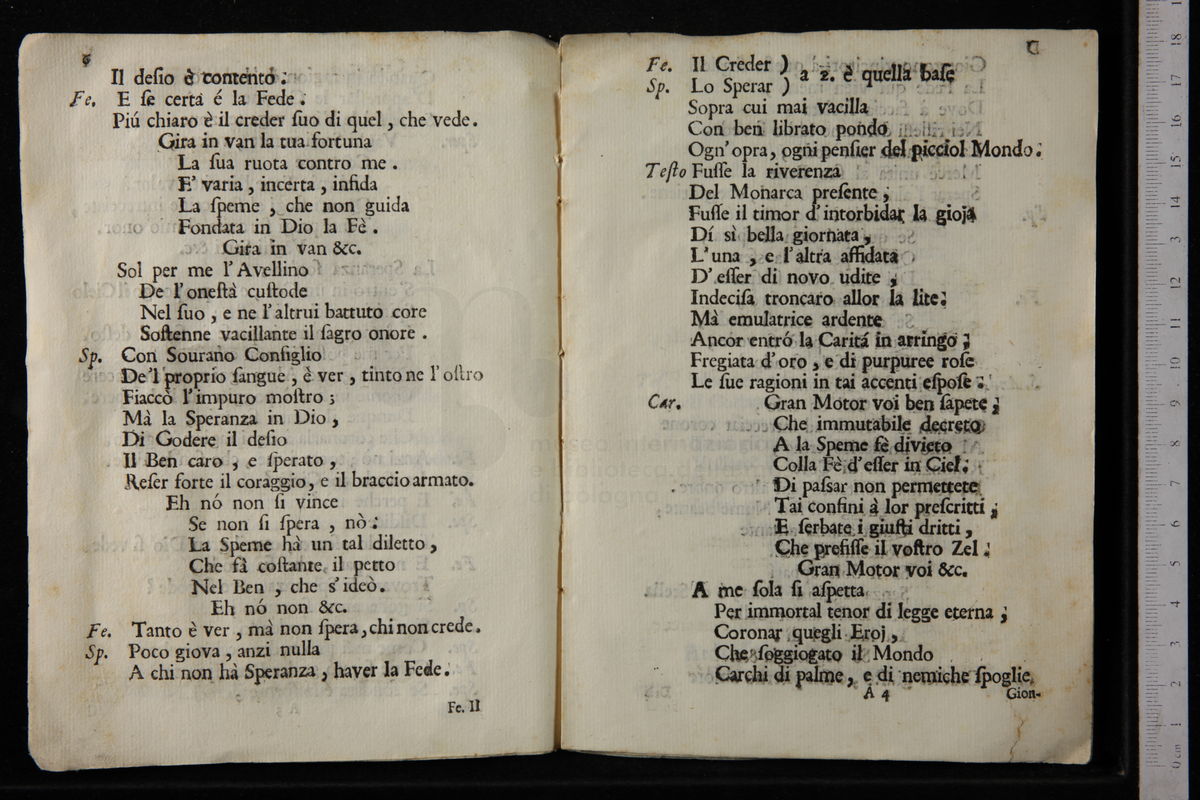 6
Il deſio è contento.
Fe. E ſe certa é la Fede.
Piú chiaro è il creder ſuo di quel, che vede.
Gira in van la tua fortuna
La ſua ruota contro me.
E' varia, incerta, infida
La ſpeme, che non guida
Fondata in Dio la Fè.
Gira in van &c.
Sol per me l'Avellino
De l'oneſtà cuſtode
Nel ſuo, e ne l'altrui battuto core
Soſtenne vacillante il ſagro onore.
Sp. Con Sourano Conſiglio
De'l proprio ſangue, è ver, tinto ne l'oſtro
Fiaccò l'impuro moſtro;
Mà la Speranza in Dio,
Di Godere il deſio
Il Ben caro, e ſperato,
Reſer forte il coraggio, e il braccio armato.
Eh nó non ſi vince
Se non ſi ſpera, nò:
La Speme hà un tal diletto,
Che fà coſtante il petto
Nel Ben, che s'ideò.
Eh nó non &c.
Fe. Tanto è ver, mà non ſpera, chi non crede.
Sp. Poco giova, anzi nulla
A chi non hà Speranza, haver la Fede.
Fe. Il
Fe. Il Creder )
a 2. è quella baſe
Sp. Lo Sperar )
Sopra cui mai vacilla
Con ben librato pondo
Ogn'opra, ogni penſier del picciol Mondo.
Teſto Fuſſe la riverenza
Del Monarca preſente;
Fuſſe il timor d'intorbidar la gioja
Dí sì bella giornata,
L'una, e l'altra affidata
D'eſſer di novo udite,
Indeciſa troncaro allor la lite.
Mà emulatrice ardente
Ancor entró la Caritá in arringo;
Fregiata d'oro, e di purpuree roſe
Le ſue ragioni in tai accenti eſpoſe.
Car. Gran Motor voi ben ſapete;
Che immutabile decreto
A la Speme fè divieto
Colla Fè d'eſſer in Ciel.
Di paſsar non permettete
Tai confini à lor preſcritti;
E ſerbate i giuſti dritti,
Che prefiſſe il voſtro Zel.
Gran Motor voi &c.
A me ſola ſi aſpetta
Per immortal tenor di legge eterna;
Coronar quegli Eroj,
Che ſoggiogato il Mondo
Carchi di palme, e di nemiche ſpoglie
A 4
Gion-